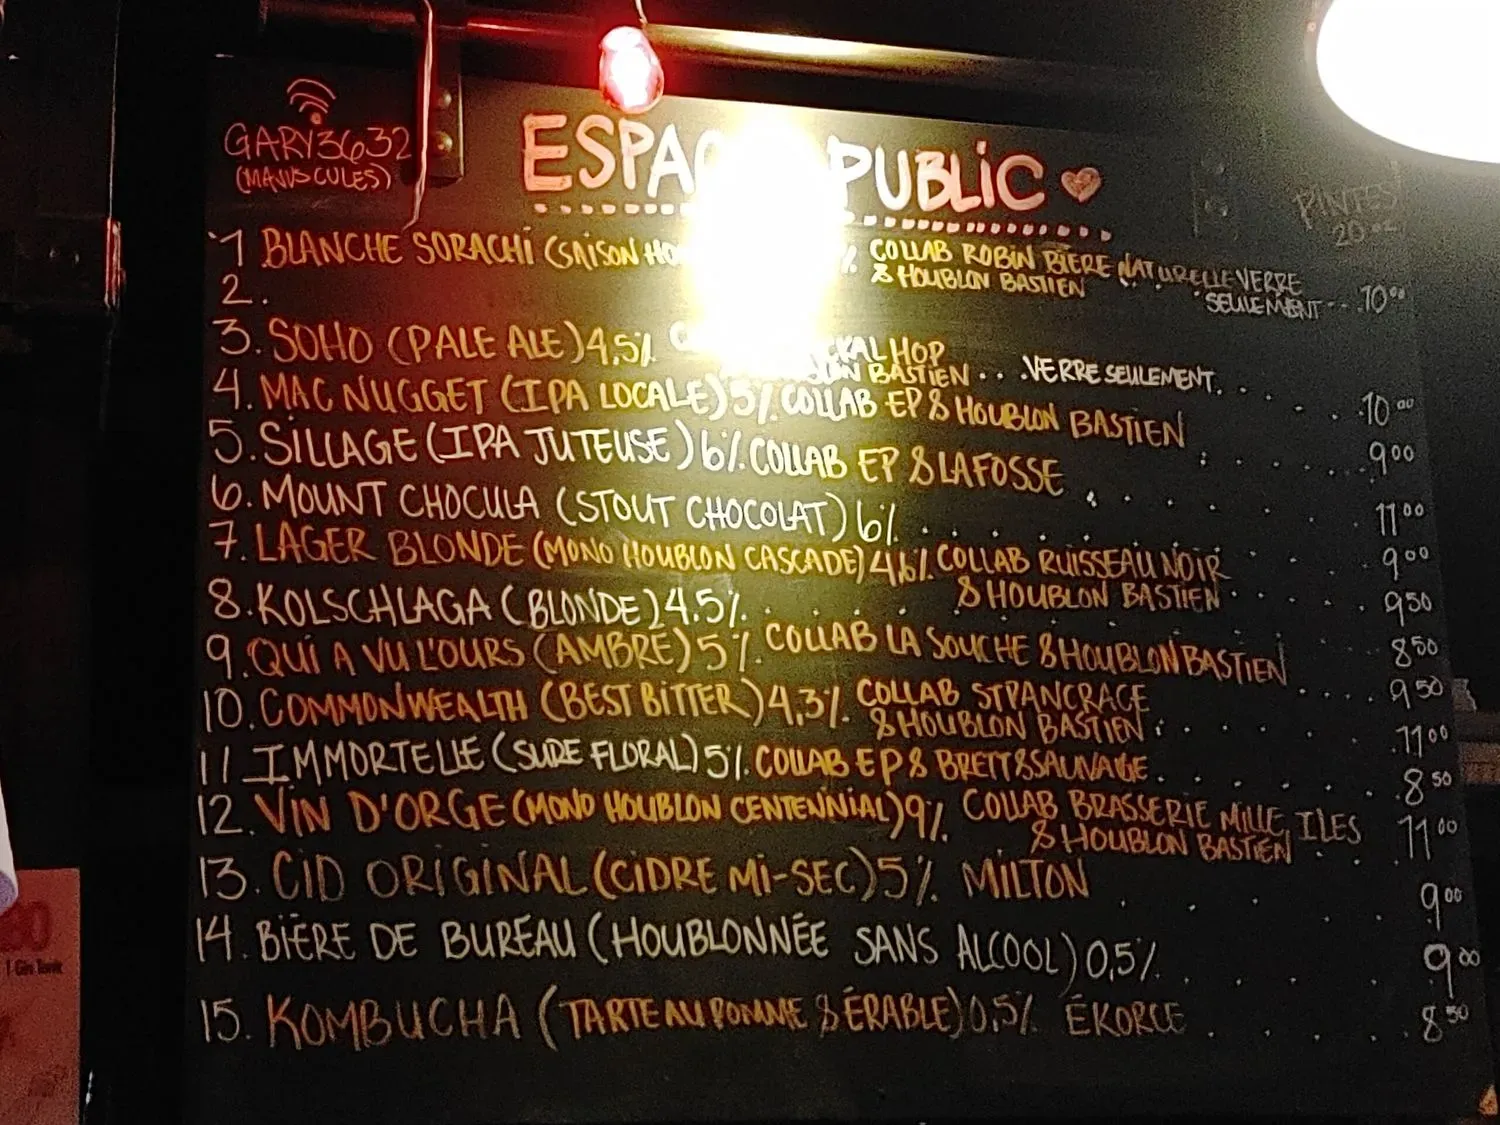 GARY3632
(MAJUSCULES)
ESPA PUBLIC
PINTES
20oz
1 BLANCHE SORACHI (SAISON %. COLLAB ROBIN BIÈRE NATURELLE VERRE
& HOUBLON BASTIEN SEULEMENT 10⁰⁰
2.
3. SOHO (PALE ALE) 4,5% HOP
BASTIEN . . . VERRE SEULEMENT. . 10⁰⁰
4. MAC NUGGET (IPA LOCALE) 5% COLLAB EP & HOUBLON BASTIEN 9⁰⁰
5. SILLAGE (IPA JUTEUSE) 6% COLLAB EP & LAFOSSE 11⁰⁰
6. MOUNT CHOCULA (STOUT CHOCOLAT) 6% 9⁰⁰
7. LAGER BLONDE (MONO HOUBLON CASCADE) 4,6% COLLAB RUISSEAU NOIR
& HOUBLON BASTIEN 9⁵⁰
8. KOLSCHLAGA (BLONDE) 4.5% 8⁵⁰
9. QUI A VU L'OURS (AMBRÉ) 5% COLLAB LA SOUCHE & HOUBLON BASTIEN 9⁵⁰
10. COMMONWEALTH (BEST BITTER) 4,3% COLLAB STPANCRACE
& HOUBLON BASTIEN 11⁰⁰
11 IMMORTELLE (SURE FLORAL) 5% COLLAB EP & BRETT&SAUVAGE 8⁵⁰
12. VIN D'ORGE (MONO HOUBLON CENTENNIAL) 9% COLLAB BRASSERIE MILLE ILES
& HOUBLON BASTIEN 11⁰⁰
13. CID ORIGINAL (CIDRE MI-SEC) 5% MILTON 9⁰⁰
14. BIÈRE DE BUREAU (HOUBLONNÉE SANS ALCOOL) 0,5% 9⁰⁰
15. KOMBUCHA (TARTE AU POMME & ÉRABLE) 0,5% ÉKORCE 8⁵⁰